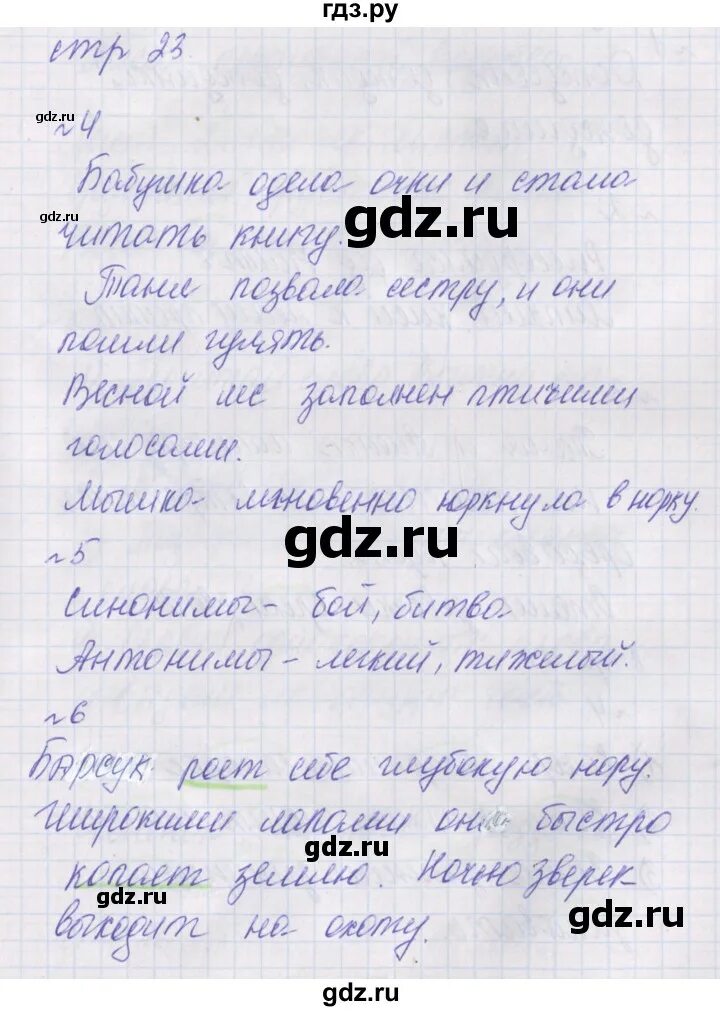 гдз.ру
стр 23.
gdz.ru
№4
Бабушка одела очки и стала
gdz.ru
gdz.ru
читать книгу.
Таня позвала сестру, и они
пошли гулять.
Весной лес заполнен птичими
голосами.
Мышка мгновенно юркнула в норку.
gdz.ru
№5
Синонимы - бой, битва
Антонимы - легкий, тяжелый.
№6
Барсук роет себе глубокую нору.
Широкими лапами он быстро
gdz.ru
копает землю. Ночью зверек
gdz.ru
gdz.ru
выходит на охоту.
gdz.ru